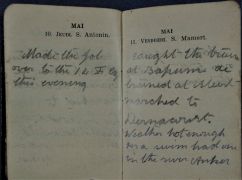 MAI
10. JEUDI. S. Antonin.
Made the job
over to the 14 F Cy
this evening
MAI
11. VENDREDI. S. Mamert.
caught the train
at Bapaume de
trained at
marched to
Weather hot enough
a swim had one
in the river Ancre